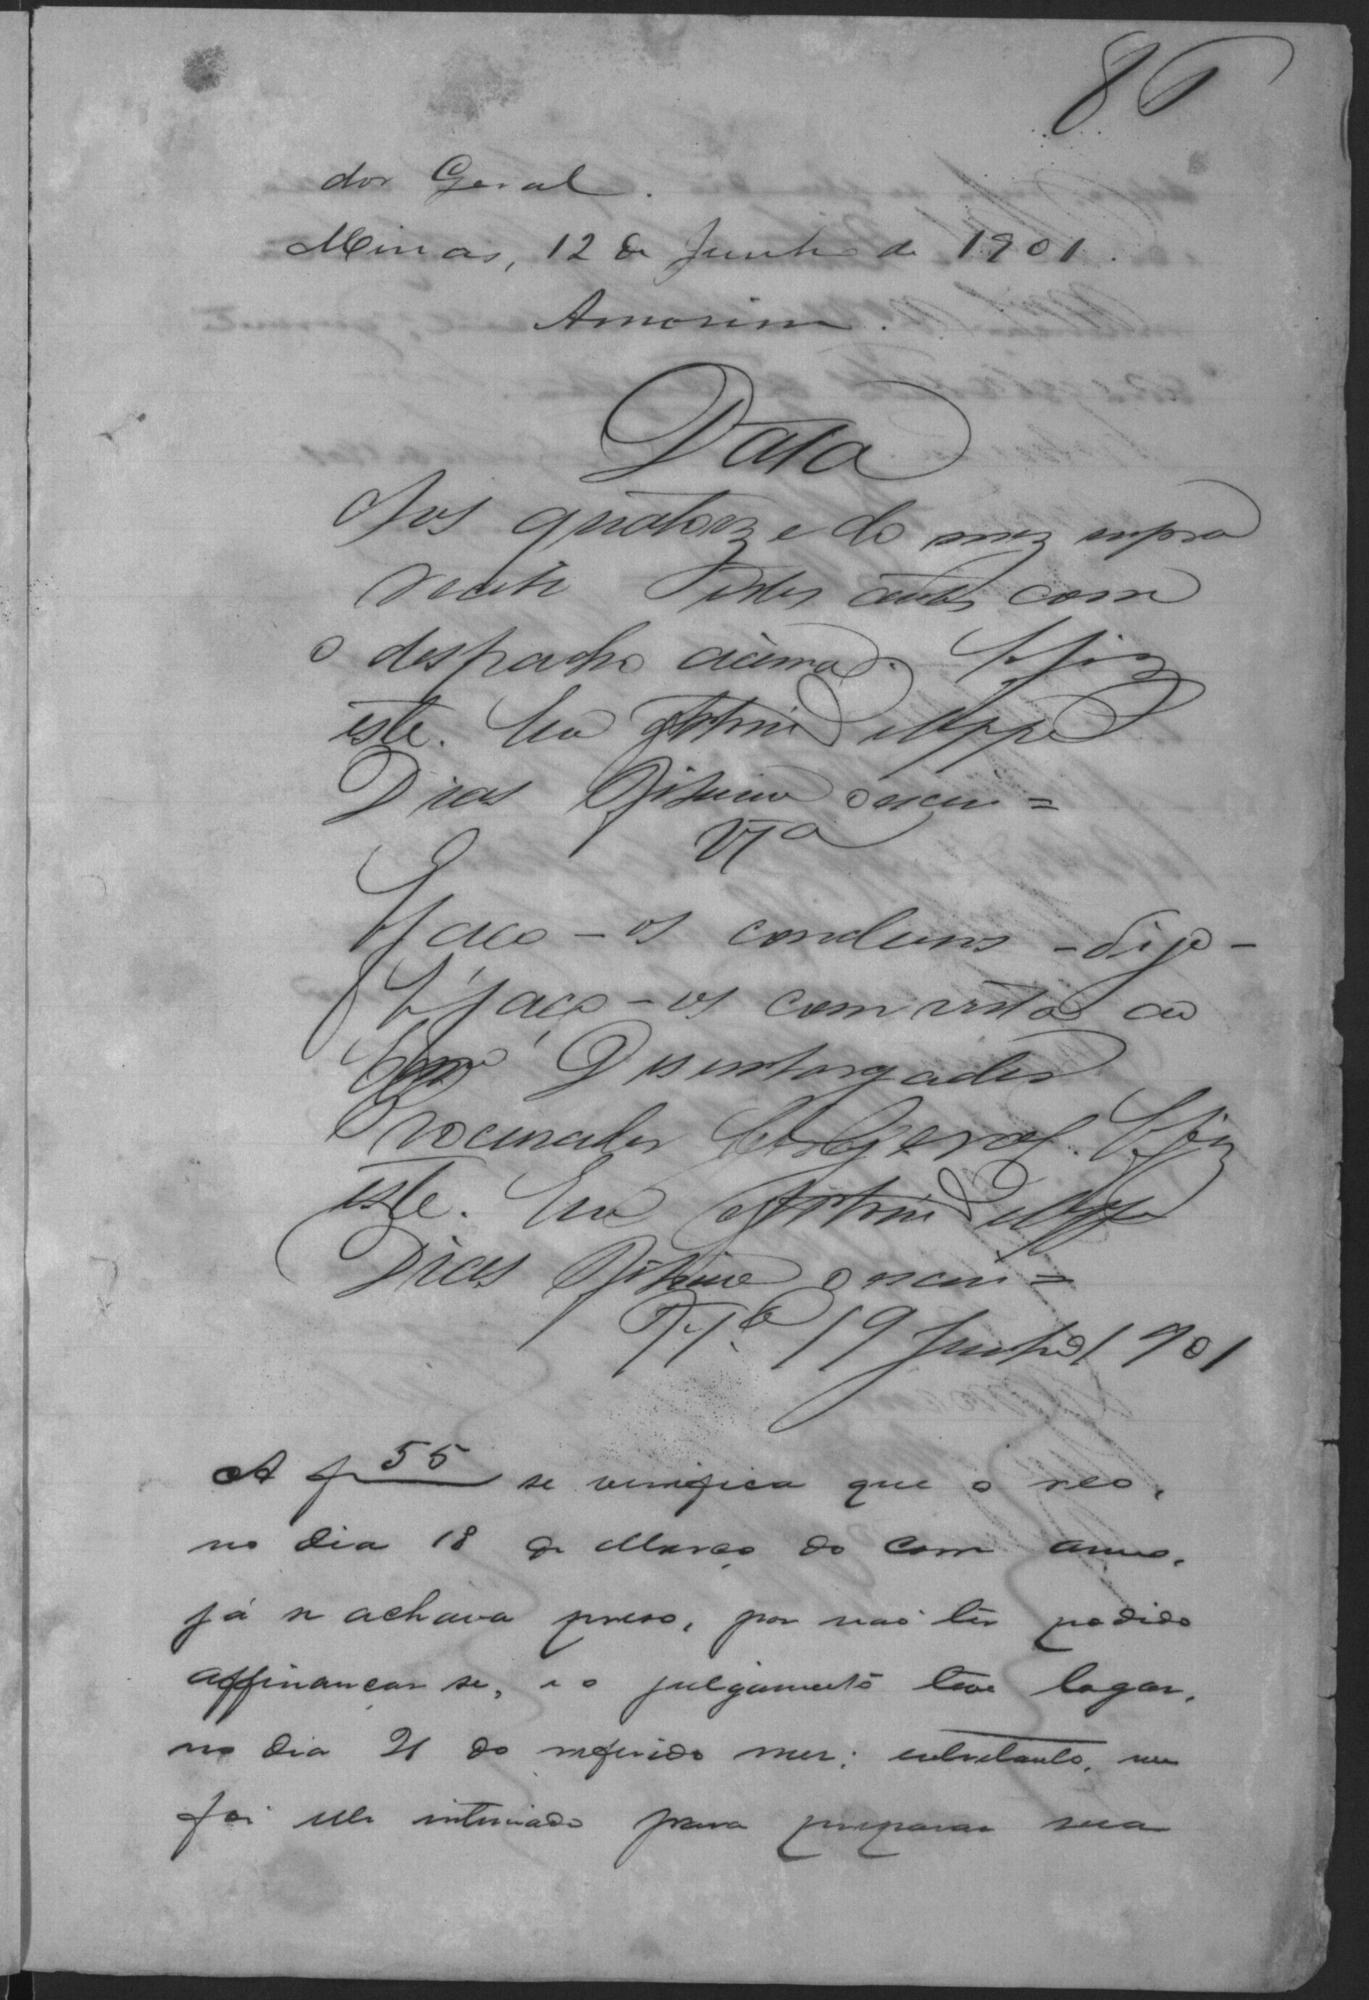 86
dor Geral.
Minas, 12 de Junho de 1901.
Amorim.
Data
Aos quatorze do mez supra
recebi estes autos com
o despacho acima. E fiz
este. Eu
Dias Ribeiro o escri=
Vta
E faço-os conclusos - digo -
E faço-os com vista ao
Exmo Desembargador
Procurador Geral. E fiz
este. Eu
Dias Ribeiro o escri=
19 Junho 1901
A f 55 se verifica que o reo,
no dia 18 de Março do corre anno,
já se achava preso, por não ter podido
affiançar se, e o julgamento teve logar,
no dia 21 do referido mez; entretanto, nem
foi elle intimado para preparar sua